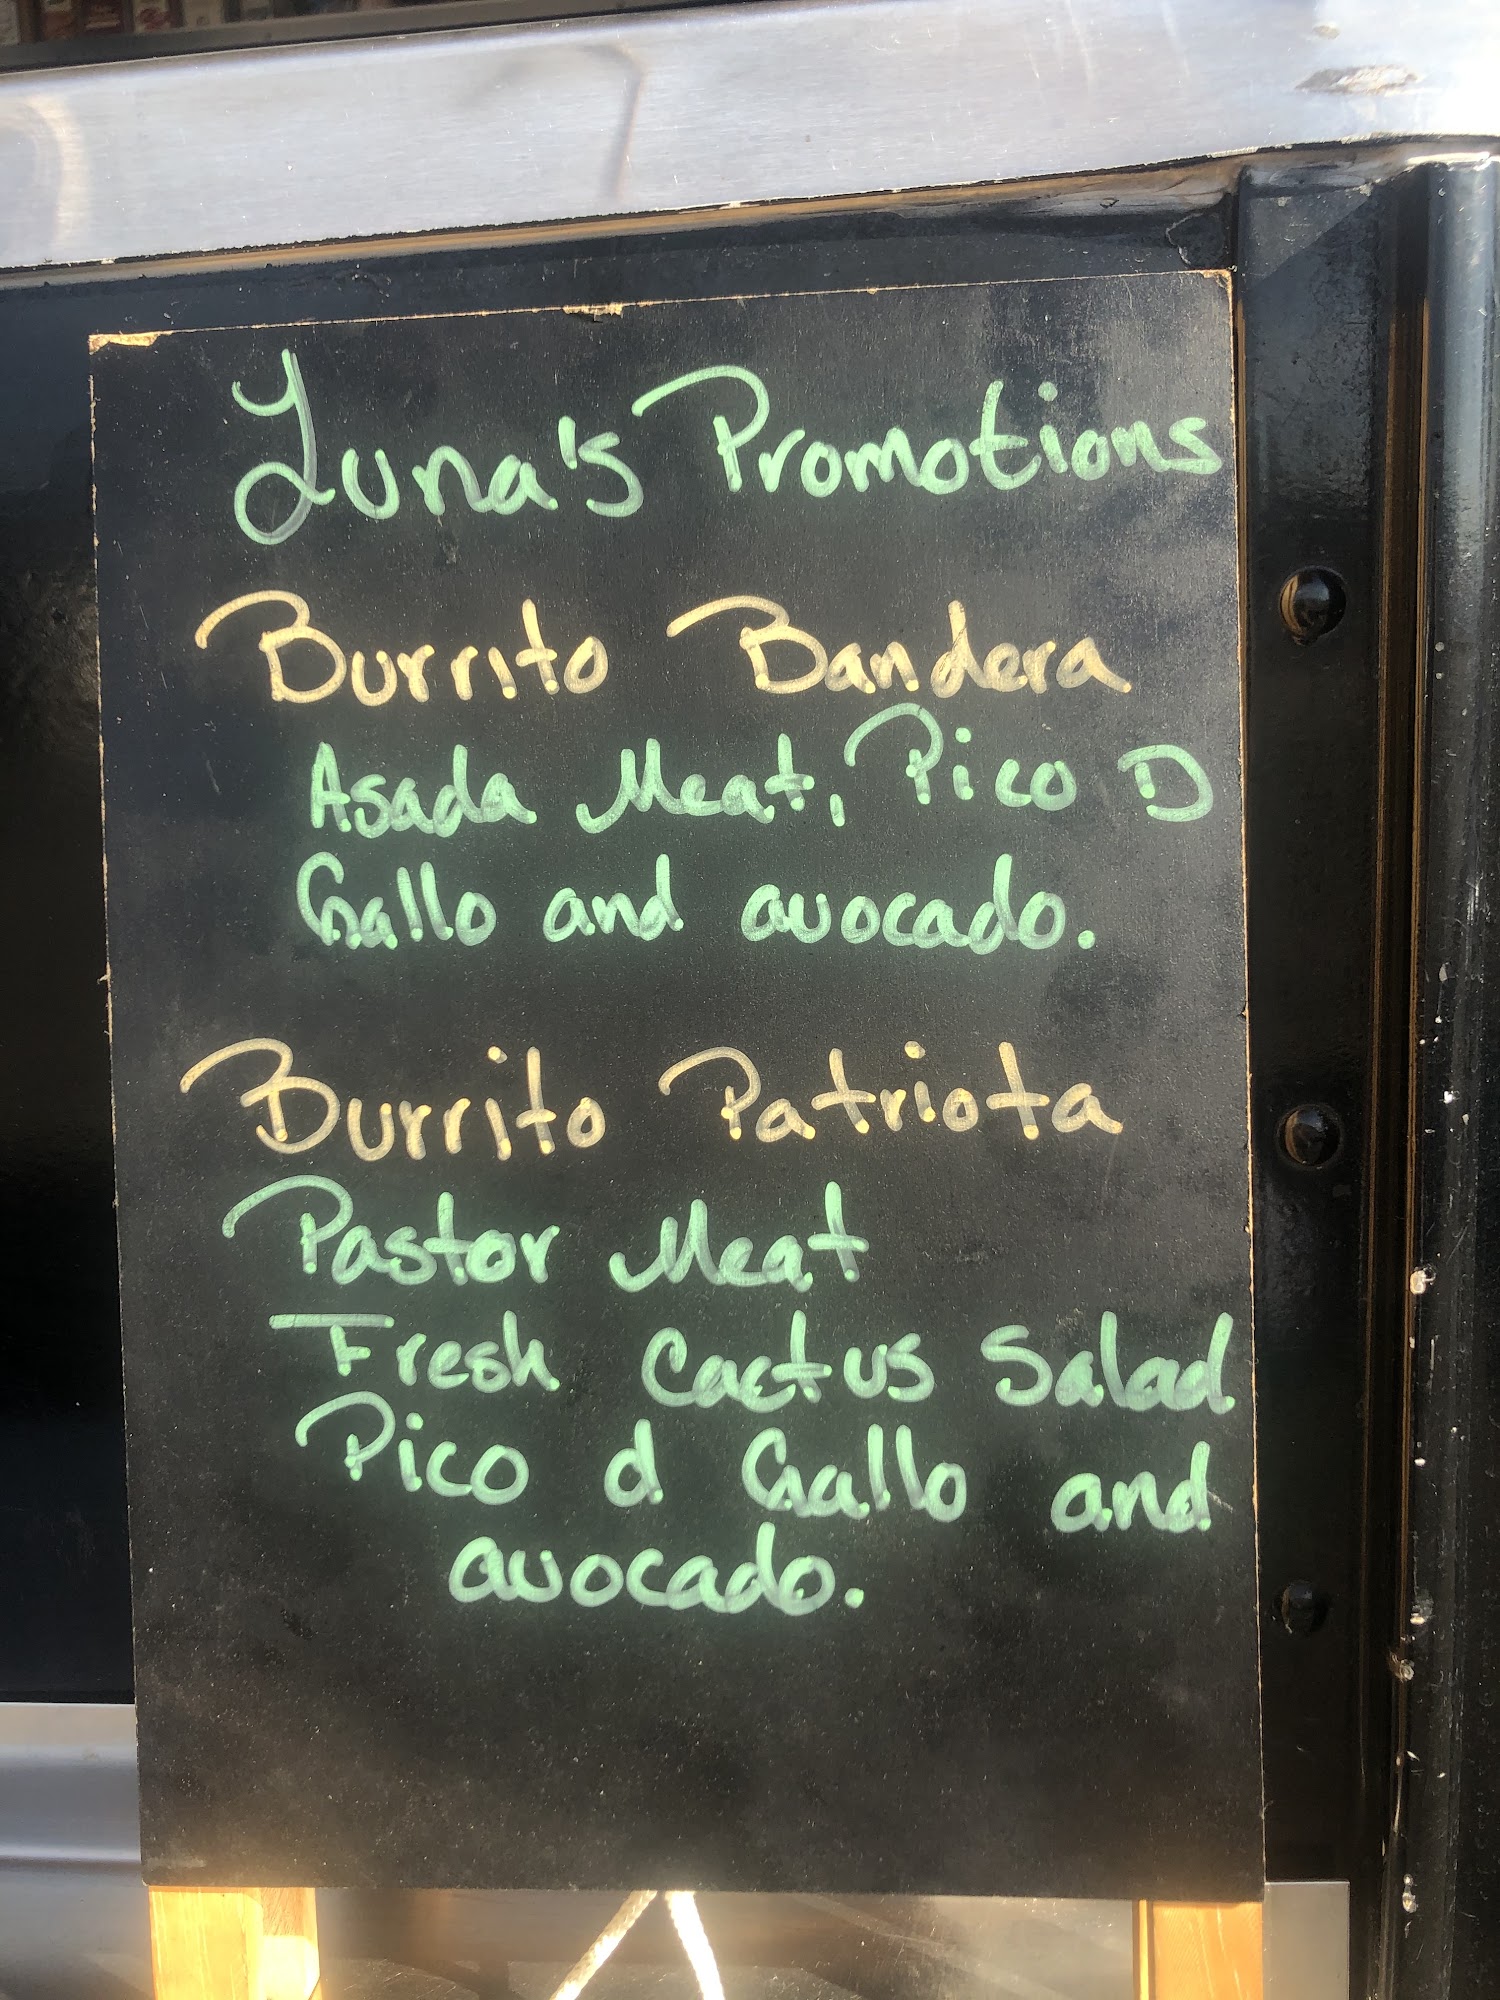 Luna's Promotions
Burrito Bandera
Asada Meat, Pico D
Gallo and avocado.
Burrito Patriota
Pastor Meat
Fresh Cactus Salad
Pico d Gallo and
avocado.